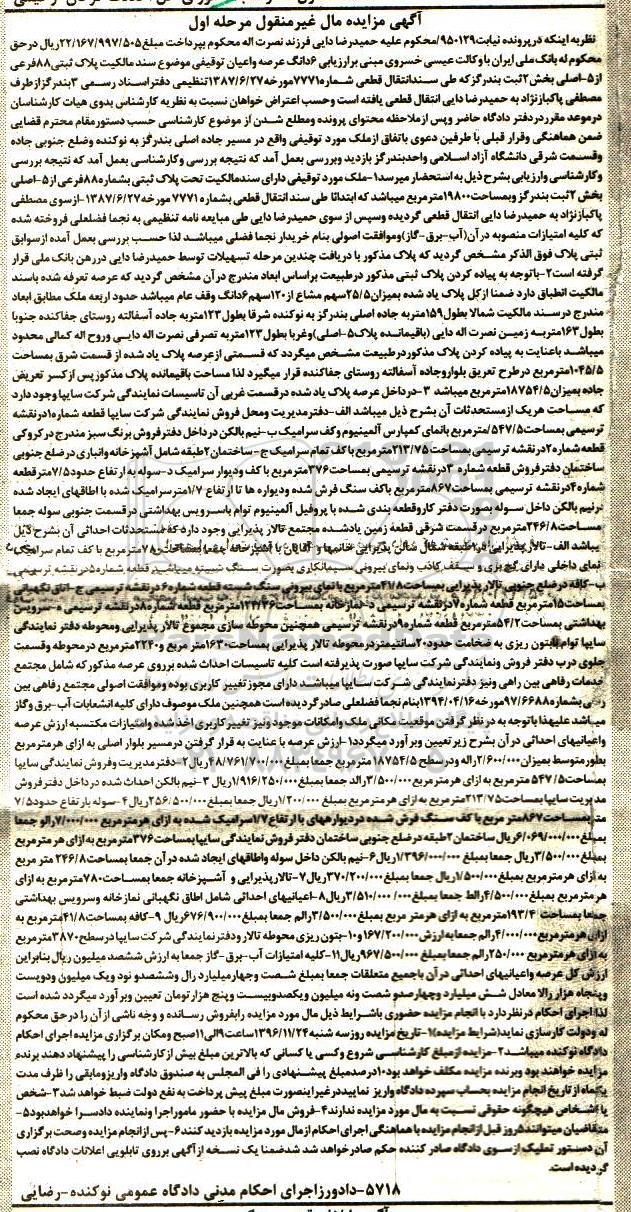 آگهی مزایده مال غیرمنقول مرحله اول
نظر به اینکه در پرونده نیابت ۹۵۰۱۲۹/محکوم علیه حمیدرضا دایی فرزند نصرت اله محکوم بپرداخت مبلغ ۲۲/۱۶۷/۹۹۷/۵۰۵ ریال در حق
محکوم له بانک ملی ایران با وکالت عیسی خسروی مبنی برارزیابی ۶دانگ عرصه واعیان توقیفی موضوع سند مالکیت پلاک ثبتی ۸۸فرعی
از۵-اصلی بخش ۲ثبت بندرگز که طی سندانتقال قطعی شماره ۷۷۷۱مورخه ۱۳۸۷/۶/۲۷تنظیمی دفتراسناد رسمی ۳بندرگزازطرف
مصطفی پاکبازنژاد به حمیدرضا دایی انتقال قطعی یافته است وحسب اعتراض خواهان نسبت به نظریه کارشناس بدوی هیات کارشناسان
درموعد مقرردردفتر دادگاه حاضر وپس ازملاحظه محتوای پرونده ومطلع شدن از موضوع کارشناسی حسب دستورمقام محترم قضایی
ضمن هماهنگی وقرار قبلی با طرفین دعوی باتفاق ازملک مورد توقیفی واقع در مسیر جاده اصلی بندرگز به نوکنده وضلع جنوبی جاده
وقسمت شرقی دانشگاه آزاد اسلامی واحدبندرگز بازدید وبررسی بعمل آمد که نتیجه بررسی وکارشناسی بعمل آمد که نتیجه بررسی
وکارشناسی وارزیابی بشرح ذیل به استحضار میرسد۱-ملک مورد توقیفی دارای سندمالکیت تحت پلاک ثبتی بشماره ۸۸فرعی از۵-اصلی
بخش ۲ثبت بندرگز وبمساحت ۱۹۸۰۰مترمربع میباشد که ابتدائا طی سند انتقال قطعی بشماره ۷۷۷۱ مورخه ۱۳۸۷/۶/۲۷-ازسوی مصطفی
پاکبازنژاد به حمیدرضا دایی انتقال قطعی گردیده وسپس از سوی حمیدرضا دایی طی مبایعه نامه تنظیمی به نجما فضلعلی فروخته شده
که کلیه امتیازات منصوبه درآن(آب-برق-گاز)وموافقت اصولی بنام خریدار نجما فضلی میباشد لذا حسب بررسی بعمل آمده ازسوابق
ثبتی پلاک فوق الذکر مشخص گردید که پلاک مذکور با دریافت چندین مرحله تسهیلات توسط حمیدرضا دایی دررهن بانک ملی قرار
گرفته است۲-باتوجه به پیاده کردن پلاک ثبتی مذکور درطبیعت براساس ابعاد مندرج درآن مشخص گردید که عرصه تعرفه شده باسند
مالکیت انطباق دارد ضمنا ازکل پلاک یاد شده بمیزان ۲۵/۵سهم مشاع از۱۲۰سهم ۶دانگ وقف عام میباشد حدود اربعه ملک مطابق ابعاد
مندرج درسند مالکیت شمالا بطول ۱۵۹متر به جاده اصلی بندرگز به نوکنده شرقا بطول ۱۲۳متربه جاده آسفالته روستای جفاکنده جنوبا
بطول ۱۶۳متربه زمین نصرت اله دایی (باقیمانده پلاک ۵-اصلی)وغربا بطول ۱۲۳متربه تصرفی نصرت اله دایی وروح اله کمالی محدود
میباشد باعنایت به پیاده کردن پلاک مذکوردرطبیعت مشخص میگردد که قسمتی ازعرصه پلاک یاد شده از قسمت شرق بمساحت
۱۰۴۵/۵مترمربع درطرح تعریق بلوارجاده آسفالته روستای جفاکنده قرار میگیرد لذا مساحت باقیمانده پلاک مذکورپس ازکسر تعریض
جاده بمیزان ۱۸۷۵۴/۵مترمربع میباشد ۳-درداخل عرصه پلاک یاد شده درقسمت غربی آن تاسیسات نمایندگی شرکت سایپا وجود دارد
که مساحت هریک ازمستحدثات آن بشرح ذیل میباشد الف-دفترمدیریت ومحل فروش نمایندگی شرکت سایپا قطعه شماره ۱درنقشه
ترسیمی بمساحت ۵۴۷/۵مترمربع بانمای کمپارس آلمینیوم وکف سرامیک ب-نیم بالکن درداخل دفترفروش برنگ سبز مندرج درکروکی
قطعه شماره ۲درنقشه ترسیمی بمساحت ۲۱۳/۷۵مترمربع باکف تمام سرامیک ج-ساختمان ۲طبقه شامل آشپزخانه وانباری درضلع جنوبی
ساختمان دفترفروش قطعه شماره ۳درنقشه ترسیمی بمساحت ۳۷۶مترمربع با کف ودیوار سرامیک د-سوله به ارتفاع حدود۷/۵مترقطعه
شماره ۴درنقشه ترسیمی بمساحت ۸۶۷مترمربع باکف سنگ فرش شده ودیواره ها تا ارتفاع ۱/۷مترسرامیک شده با اطاقهای ایجاد شده
درنیم بالکن داخل سوله بصورت دفتر کاروقطعه بندی شده با پروفیل آلمینیوم توام باسرویس بهداشتی درقسمت جنوبی سوله جمعا
مساحت ۲۴۶/۸مترمربع درقسمت شرقی قطعه زمین یادشده مجتمع تالار پذیرایی وجود دارد که مستحدثات احداثی آن بشرح ذیل
یباشد الف-تالارپذیرایی در۲طبقه شامل سالن پذیرایی خانمها و آقایان با آشپزخانه جمعا بمساحت ۷۸۰مترمربع با کف تمام سرامیک
نمای داخلی دارای گچبری و سقف کاذب ونمای بیرونی سیمانکاری بصورت سنگ شمینتو میباشد قطعه شماره ۵درنقشه ترسیمی
ب-کافه درضلع جنوبی تالارپذیرایی بمساحت ۴۱/۸مترمربع با نمای بیرونی سنگ شسته قطعه شماره ۶درنقشه ترسیمی ج-اتاق نگهبانی
بمساحت ۱۵مترمربع قطعه شماره ۷درنقشه ترسیمی د-نمازخانه بمساحت ۱۲۴/۴۶مترمربع قطعه شماره ۸درنقشه ترسیمی ه-سرویس
بهداشتی بمساحت ۵۴/۲مترمربع قطعه شماره ۹درنقشه ترسیمی همچنین محوطه سازی مجموع تالار پذیرایی ومحوطه دفتر نمایندگی
سایپا توام بابتون ریزی به ضخامت حدود۲۰سانتیمتردرمحوطه تالار پذیرایی بمساحت ۱۶۳۰متر مربع و۲۲۴۰مترمربع درمحوطه وقسمت
جلوی درب دفتر فروش ونمایندگی شرکت سایپا صورت پذیرفته است کلیه تاسیسات احداث شده برروی عرصه مذکور که شامل مجتمع
خدمات رفاهی بین راهی ونیز دفترنمایندگی شرکت سایپا میباشد دارای مجوزتغییر کاربری بوده وموافقت اصولی مجتمع رفاهی بین
رهی بشماره ۹۷/۶۶۸۸مورخه ۱۳۹۴/۰۴/۱۶بنام نجما فضلعلی صادرگردیده است همچنین ملک موصوف دارای کلیه انشعابات آب-برق وگاز
میباشد علیهذا باتوجه به درنظر گرفتن موقعیت مکانی ملک وامکانات موجود ونیز تغییر کاربری اخذ شده وامتیازات مکتسبه ارزش عرصه
واعیانیهای احداثی درآن بشرح زیرتعیین وبرآورد میگردد۱-ارزش عرصه با عنایت به قرار گرفتن درمسیر بلوار اصلی به ازای هرمترمربع
بطورمتوسط بمیزان ۲/۶۰۰/۰۰۰راله ودر سطح ۱۸۷۵۴/۵ مترمربع جمعا بمبلغ ۴۸/۷۶۱/۷۰۰/۰۰۰ریال ۲-دفترمدیریت وفروش نمایندگی سایپا
بمساحت ۵۴۷/۵ مترمربع به ازای هرمترمربع ۳/۵۰۰/۰۰۰رالد جمعا بمبلغ ۱/۹۱۶/۲۵۰/۰۰۰ریال ۳-نیم بالکن احداث شده درداخل دفترفروش
مدیریت سایپا بمساحت ۲۱۳/۷۵مترمربع به ازای هرمترمربع بمبلغ ۱/۲۰۰/۰۰۰ریال جمعا بمبلغ ۲۵۶/۵۰۰/۰۰۰ریال ۴-سوله بارتفاع حدود۷/۵
متر بمساحت ۸۶۷متر مربع با کف سنگ فرش شده دردیوارههای با ارتفاع ۱/۷سرامیک شده به ازای هرمترمربع ۷/۰۰۰/۰۰۰رالو جمعا
بمبلغ ۶/۰۶۹/۰۰۰/۰۰۰ریال ساختمان ۲طبقه درضلع جنوبی ساختمان دفترفروش نمایندگی سایپا بمساحت ۳۷۶مترمربع به ازای هر مترمربع
بمبلغ ۳/۵۰۰/۰۰۰ریال جمعا بمبلغ ۱/۳۹۶/۰۰۰/۰۰۰ریال ۶-نیم بالکن داخل سوله واطاقهای ایجاد شده درآن جمعا بمساحت ۲۴۶/۸متر مربع
به ازای هر مترمربع بمبلغ ۱/۵۰۰/۰۰۰ریال جمعا بمبلغ ۳۷۰/۲۰۰/۰۰۰ریال ۷-تالارپذیرایی و آشپزخانه جمعا بمساحت ۷۸۰مترمربع به ازای
هرمترمربع بمبلغ ۴/۵۰۰/۰۰۰رالط جمعا بمبلغ ۳/۵۱۰/۰۰۰/۰۰۰ریال ۸-اعیانیهای احداثی شامل اطاق نگهبانی نمازخانه وسرویس بهداشتی
جمعا بمساحت ۱۹۳/۴مترمربع به ازای هرمتر مربع بمبلغ ۳/۵۰۰/۰۰۰رالم جمعا بمبلغ ۶۷۶/۹۰۰/۰۰۰ریال ۹-کافه بمساحت ۴۱/۸مترمربع به
ازای هرمترمربع ۴/۰۰۰/۰۰۰رالم جمعابه ارزش ۱۶۷/۲۰۰/۰۰۰و۱۰-بتون ریزی محوطه تالار ودفترنمایندگی شرکت سایپا درسطح ۳۸۷۰مترمربع
به ازای هرمترمربع ۲۵۰/۰۰۰رالم جمعا بمبلغ ۹۶۷/۵۰۰/۰۰۰ریال ۱۱-کلیه امتیازات آب-برق-گاز جمعا به ارزش ششصد میلیون ریال بنابراین
ارزش کل عرصه واعیانیهای احداثی درآن باجمیع متعلقات جمعا بمبلغ شصت وچهارمیلیارد رال وششصدو نود ویک میلیون ودویست
وپنجاه هزار رالا معادل شش میلیارد وچهارصدو شصت ونه میلیون ویکصدوبیست و پنج هزار تومان تعیین وبرآورد میگردد شده است
لذا اجرای احکام درنظردارد با انجام مزایده حضوری باشرایط ذیل مال مورد مزایده رابفروش رسانده و وجه ناشی ازآن را درحق محکوم
له ودولت کارسازی نماید(شرایط مزایده)۱-تاریخ مزایده روزسه شنبه ۱۳۹۶/۱۱/۲۴ساعت ۹الی ۱۱صبح ومکان برگزاری مزایده اجرای احکام
دادگاه نوکنده میباشد۲-مزایده ازمبلغ کارشناسی شروع وکسی یا کسانی که بالاترین مبلغ بیش ازکارشناسی را پیشنهاد دهند برنده
مزایده خواهند بود وبرنده مزایده مکلف خواهد بود۱۰درصدمبلغ پیشنهادی را فی المجلس به صندوق دادگاه واریزومابقی را ظرف مدت
یکماه از تاریخ انجام مزایده بحساب سپرده دادگاه واریز نمایددرغیراینصورت مبلغ پیش پرداخت به نفع دولت ضبط خواهد شد۳-شخص
یا اشخاص هیچگونه حقوقی نسبت به مال مورد مزایده ندارند۴-فروش مال مزایده با حضور ماموراجرا ونماینده دادسرا خواهدبود۵-
متقاضیان میتوانند۵روز قبل ازانجام مزایده باهماهنگی اجرای احکام ازمال مورد مزایده بازدید کنند۶-پس ازانجام مزایده وصحت برگزاری
آن دستور تملیک ازسوی دادگاه صادر کننده حکم صادرخواهد شد شدضمنا یک نسخه ازآگهی برروی تابلویی اعلانات دادگاه نصب
گردیده است.
۵۷۱۸-دادورزاجرای احکام مدنی دادگاه عمومی نوکنده-رضایی